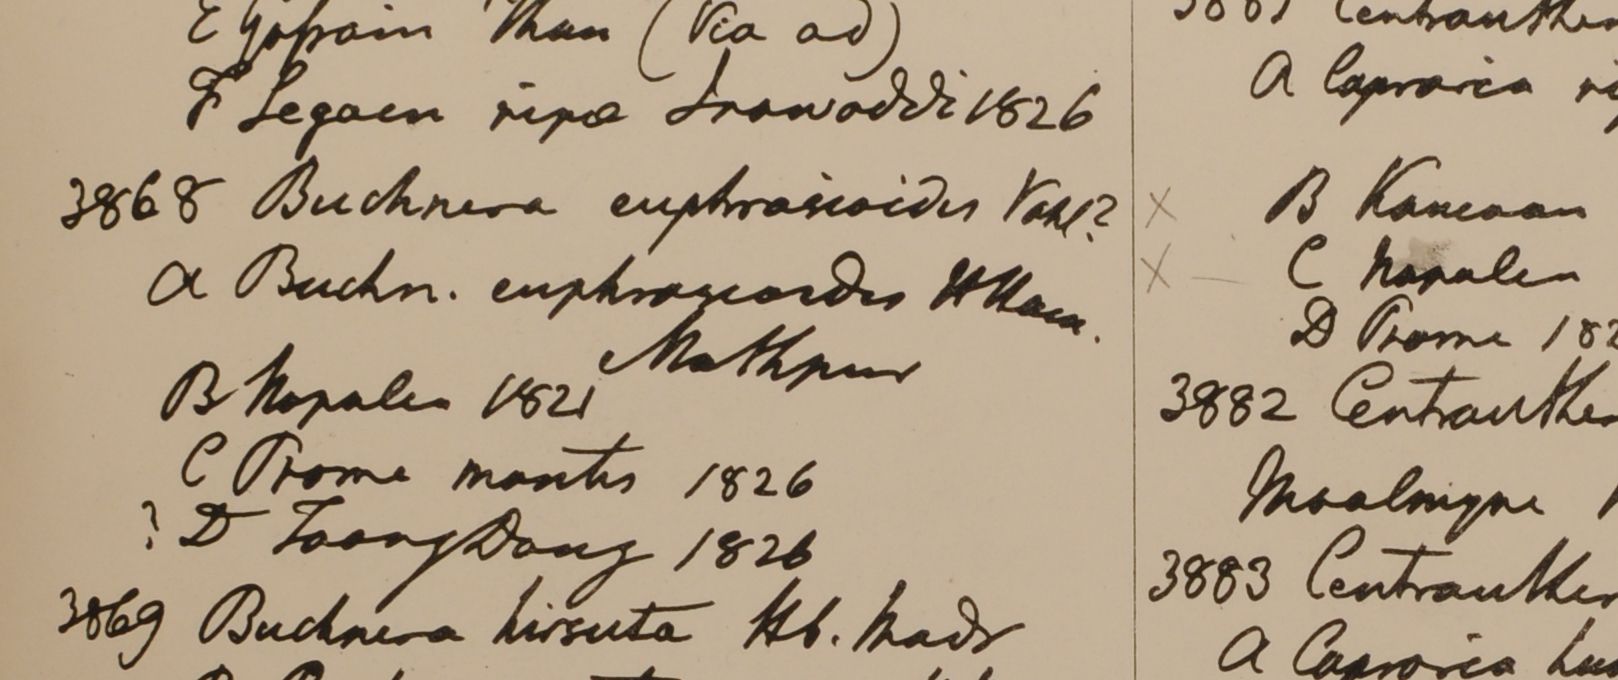 E Gossain Than (Via ad)
F Segaen ripa Irawaddi 1826
3868 Buchnera euphrasioides Vahl?
A Buchn. euphrasioides HHam.
Mathpur
B Napalia 1821
C Prome montis 1826
? D Taong Dong 1826
3869 Buchnera hirsuta Hb. Madr
3881 Centranthe
A Capraria ri
x B
x — C Napalia
D Prome 182
3882 Centranthe
Moalmyne
3883 Centranther
A Capraria